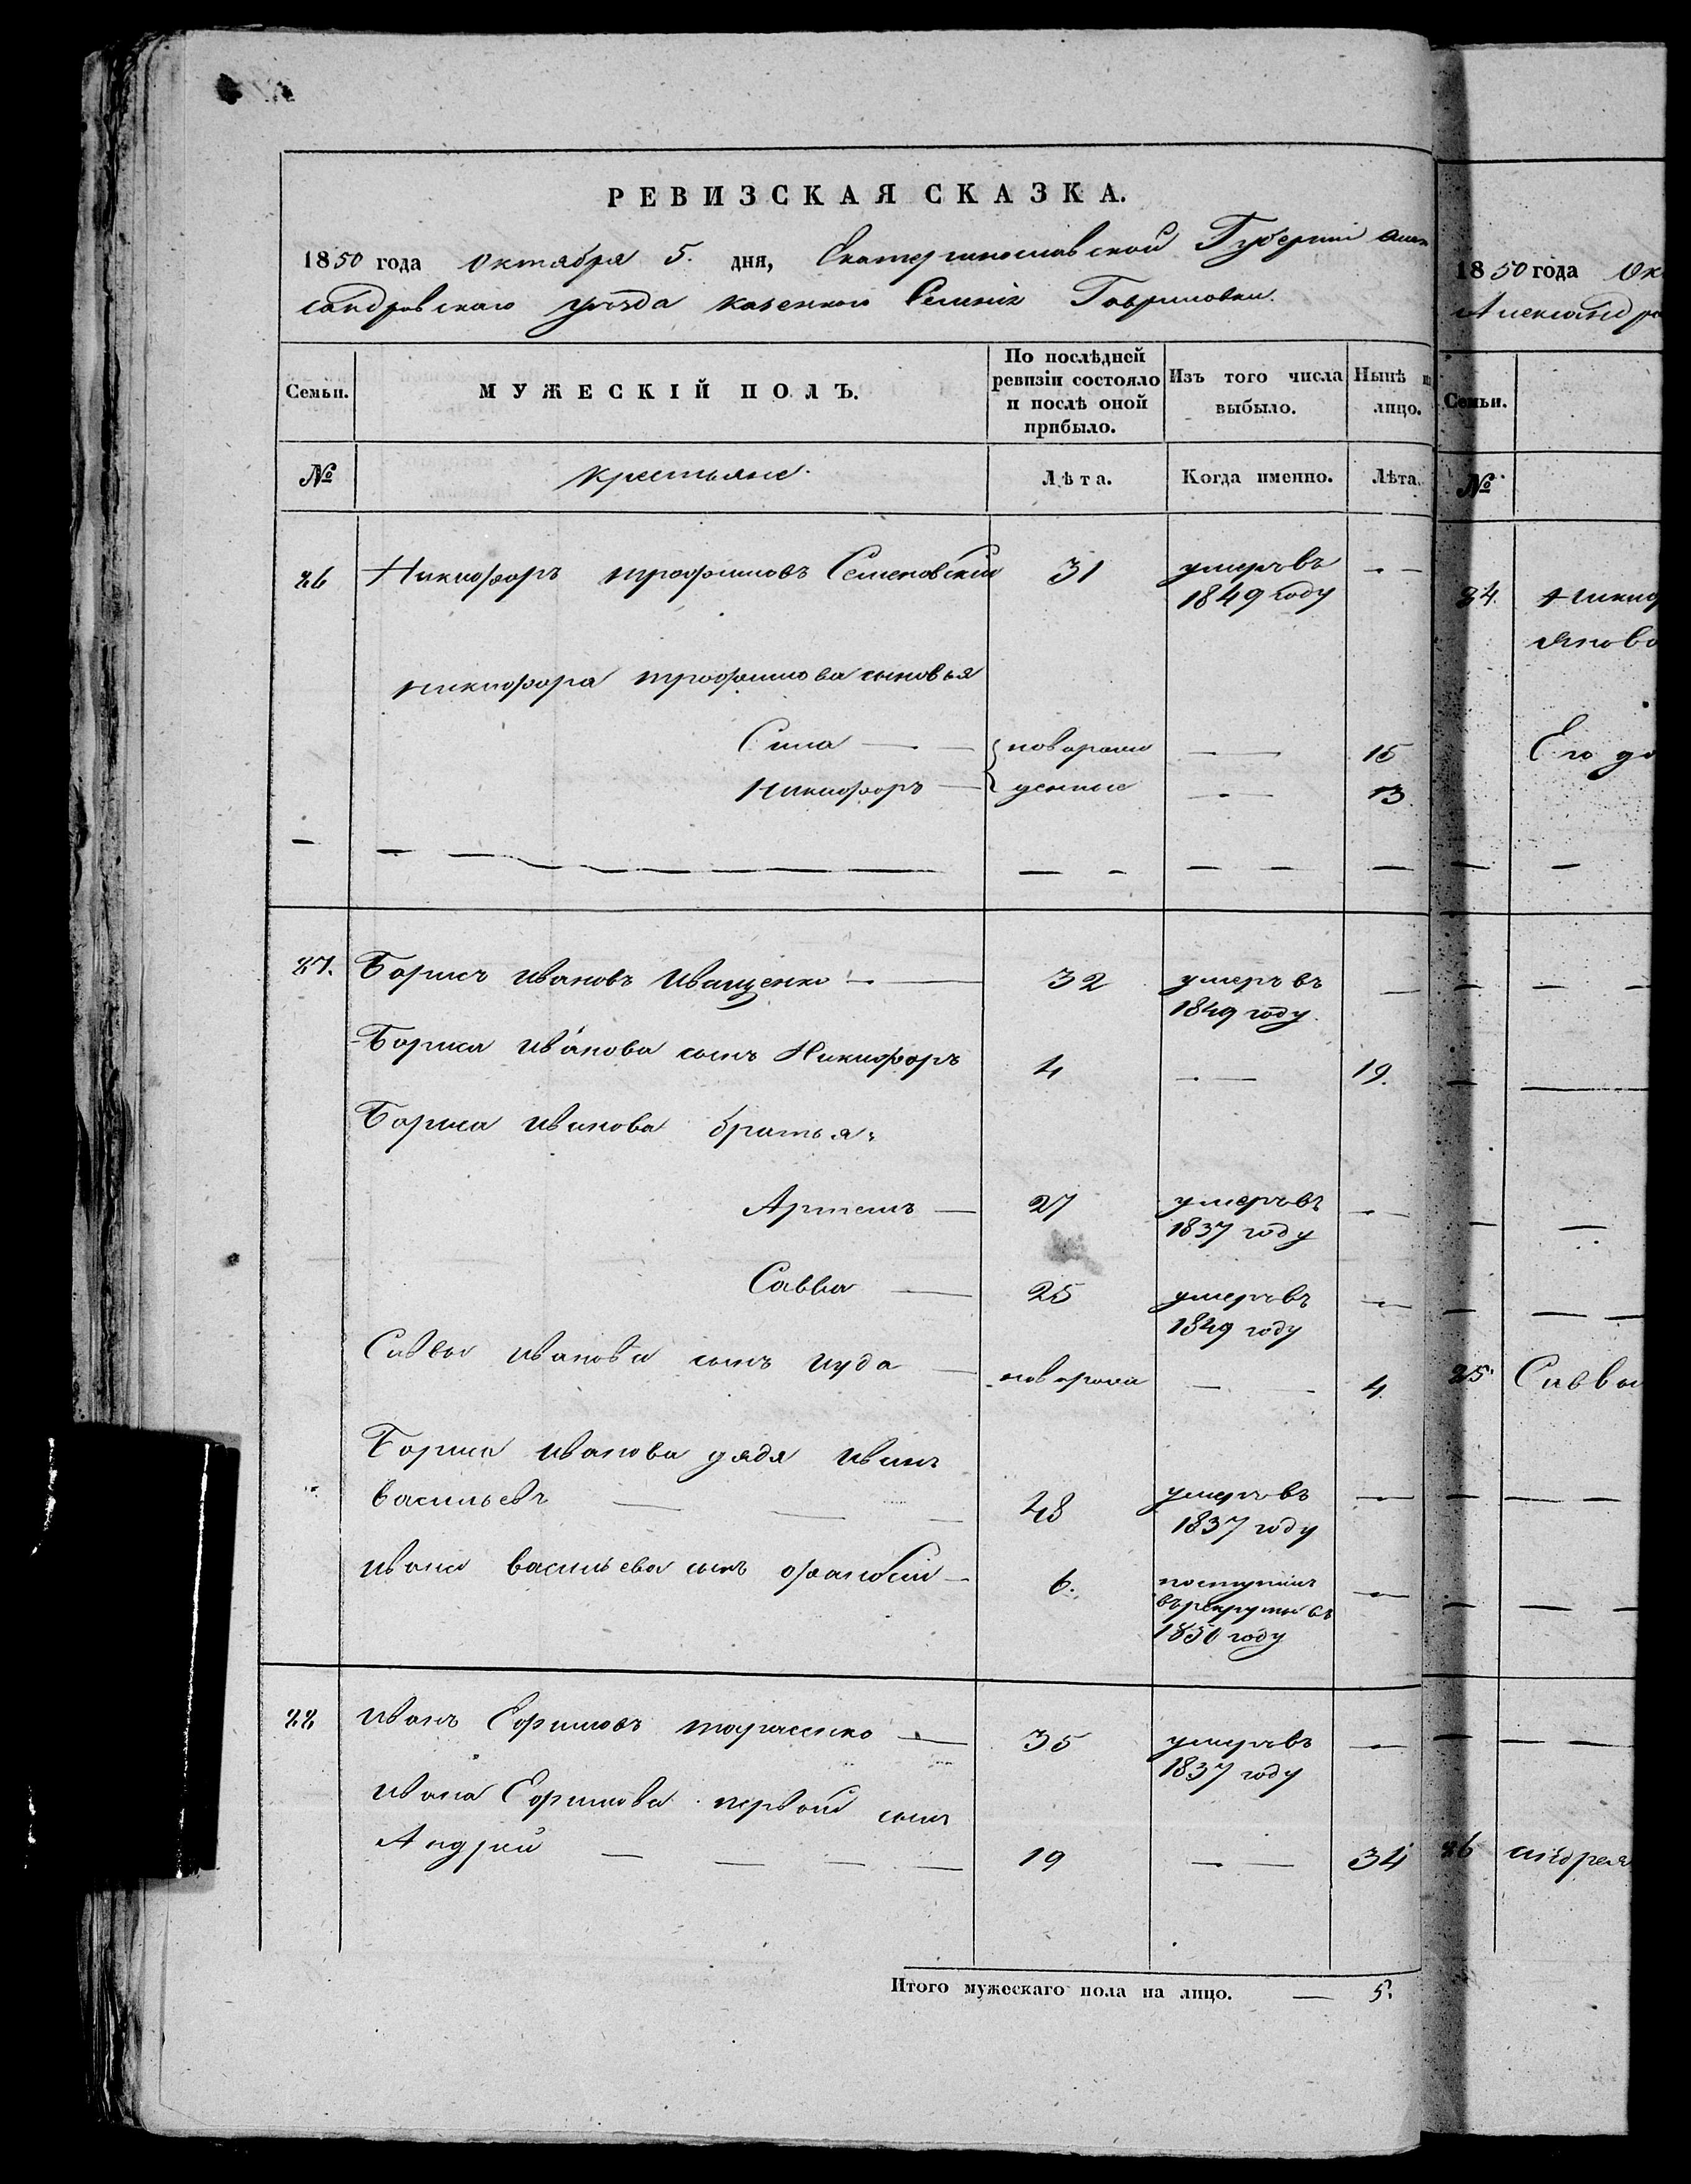 РЕВИЗСКАЯ СКАЗКА.
1850 года Октября 5. дня, Екатеринославской Губерніи Алек
сандровскаго уѣзда казеннаго Селенія Гавриловки.
Семьи. МУЖЕСКІЙ ПОЛЪ. По послѣдней ревизіи состояло и послѣ оной прибыло. Изъ того числа выбыло. Нынѣ на лицо.
№ Крестьяне. Лѣта. Когда именно. Лѣта.
26 Никифоръ Трофимовъ Семеновскій 31 умеръ въ —
1849 году
Никифора Трофимова сыновья
Сила — новорож — 15
Никифоръ — денные — 13
27. Борисъ Ивановъ Иващенко — 32 умеръ въ —
1849 году.
Бориса Иванова сынъ Никифоръ 4 — 19.
Бориса Иванова братья:
Артемъ — 27 умеръ въ —
1837 году
Савва — 25 умеръ въ —
1849 году
Саввы Иванова сынъ Иуда — новорож — 4
Бориса Иванова дядя Иванъ
Васильевъ — 48 умеръ въ —
1837 году
Ивана Васильева сынъ — 6. поступилъ —
въ рекруты въ
1850 году
28 Иванъ Ефимовъ Тарасенко — 35 умеръ въ —
1837 году
Ивана Ефимова первой сынъ
Андрей — 19 — 34
Итого мужескаго пола на лицо. — 5.
1850 года Ок
Александро
Семьи.
№
24.
Его до
25. Саввы
26 Андрея